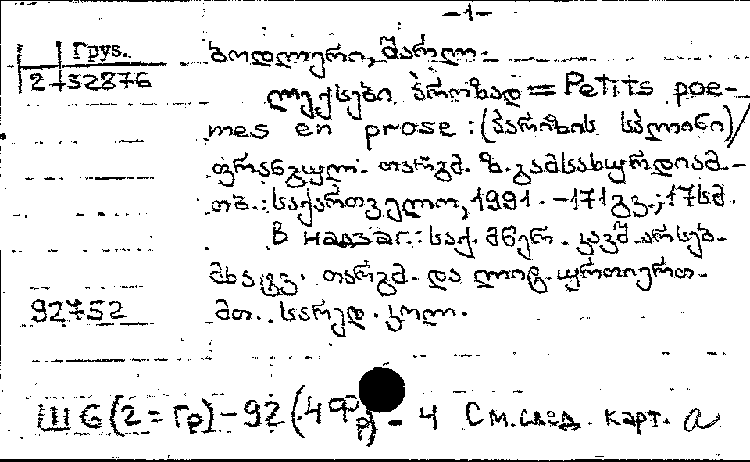 -1-
Грус.
2-32876
ბოდლერი, შარლ.
ლექსები პროზად = Petits poe-
mes en prose : (პარიზის სპლინი)/
ფრანგულ. თარგმ. ზ. გამსახურდიამ.-
თბ.: საქართველო, 1991. -171გვ.; 17სმ.
В надзаг.: საქ. მწერ. კავშ. არსებ.
მხატვ. თარგმ. და ლიტ. ურთიერთ.
მთ. სარედ. კოლ.
92752
Ш6(2=Гр)-92(.4Фр)-4 См. след. карт. а